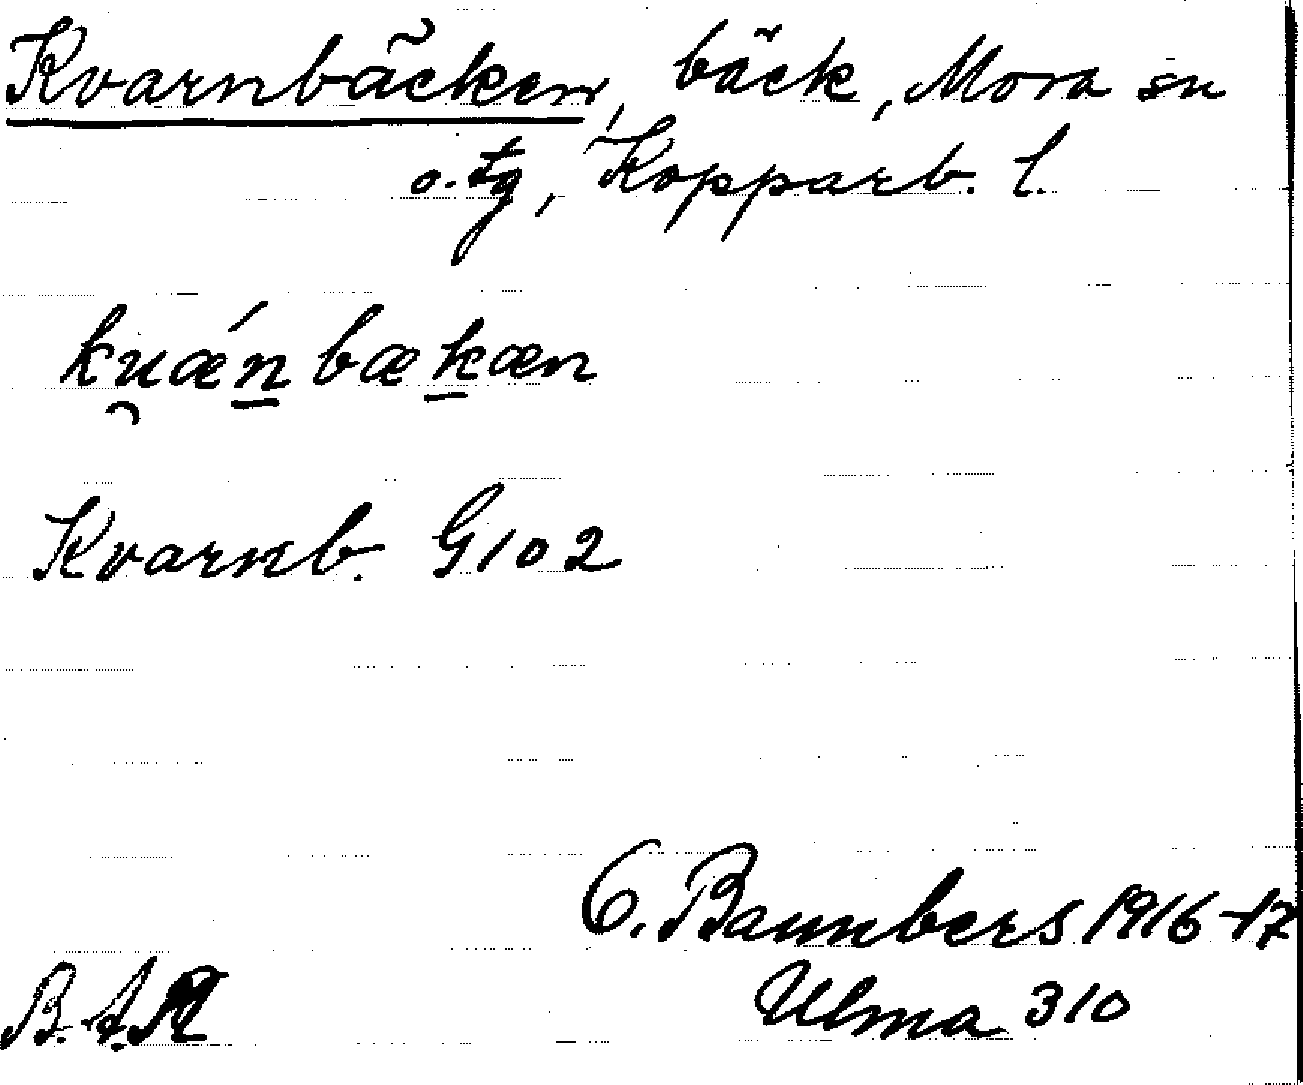 Kvarnbäcken, bäck, Mora sn
o. tg, Kopparb. l.
ku̯ǽn̲ bæk̲æn
Kvarnb. G102
O. Bannbers 1916-17
Ulma 310